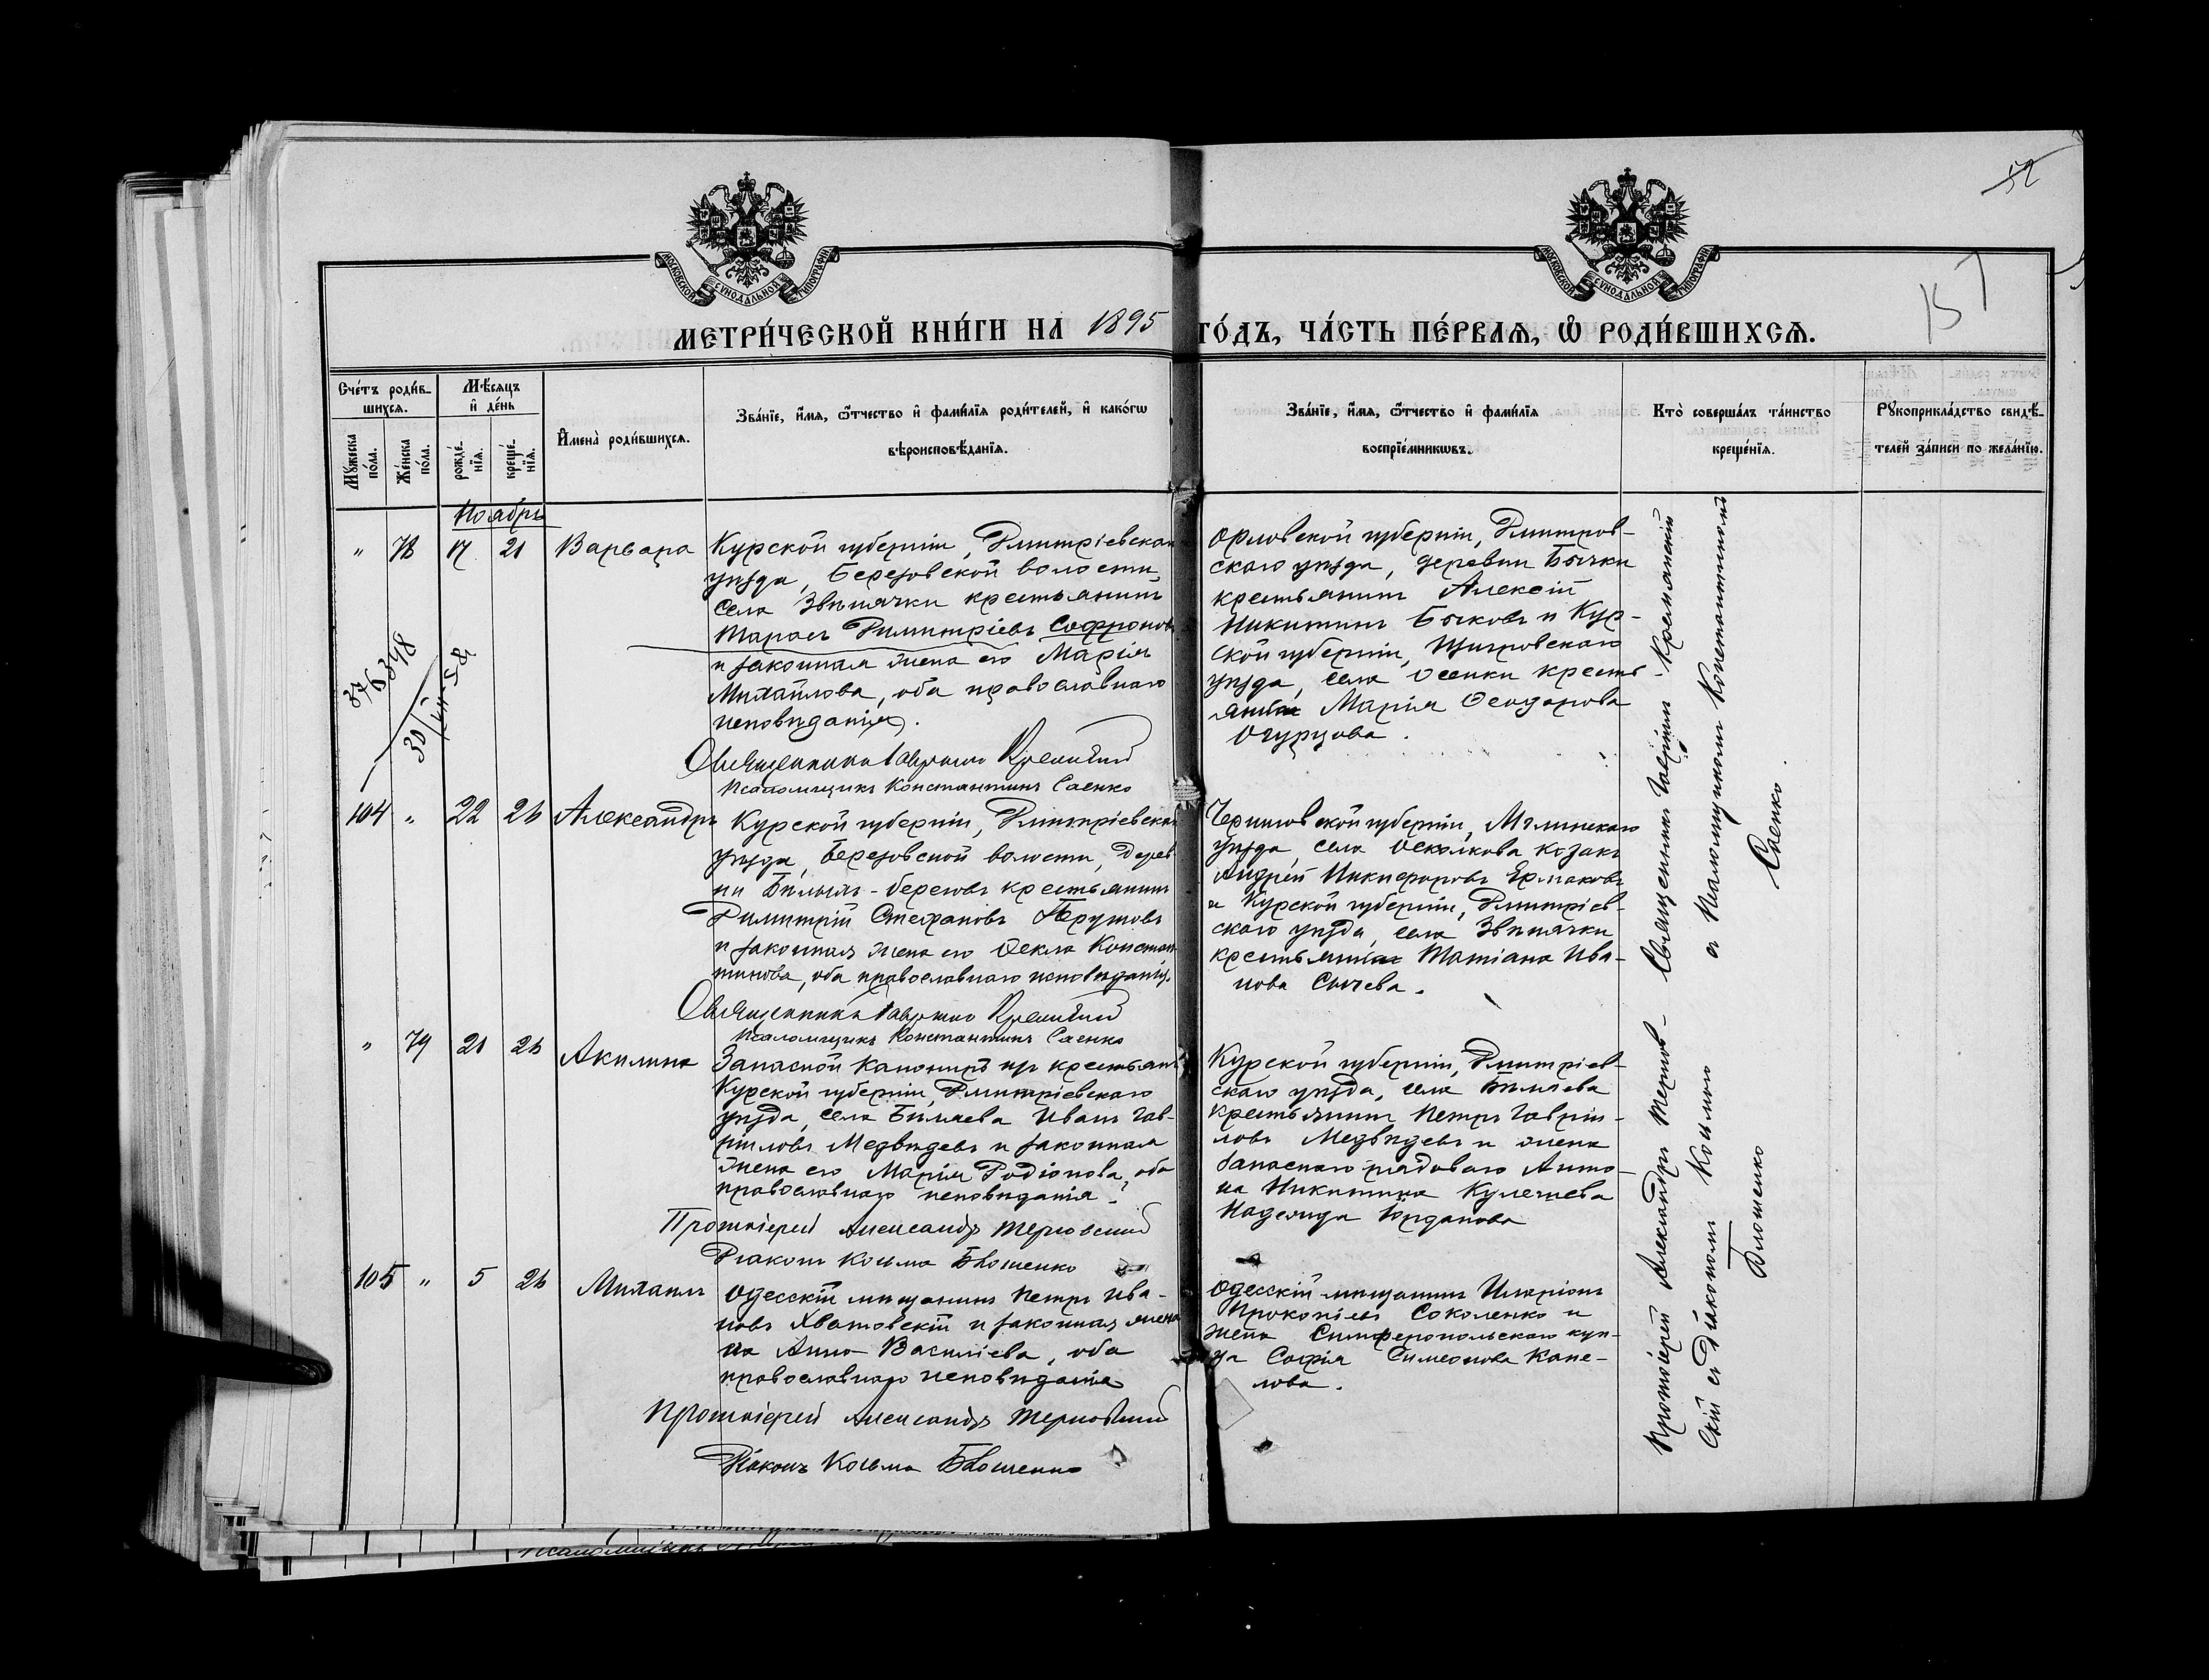 52
МОСКОВСКОЙ СѴНОДАЛЬНОЙ ТИПОГРАФІИ
МОСКОВСКОЙ СѴНОДАЛЬНОЙ ТИПОГРАФІИ
МЕТРИ́ЧЕСКОЙ КНИ́ГИ НА 1895 ГО́ДЪ, ЧА́СТЬ ПЕ́РВАѦ, Ѽ РОДИ́ВШИХСѦ.
Сче́тъ роди́в-
шихсѧ.
Мꙋжеска по́ла.
Же́нска по́ла.
Мѣ́сѧцъ и҆ де́нь
рожде́-
нїѧ.
креще́-
нїѧ.
И҆мена̀ роди́вшихсѧ.
Зва́нїе, и҆́мѧ, ѻ҆́тчество и҆ фами́лїѧ роди́телей, и҆ како́гѡ
вѣроисповѣ́данїѧ.
Зва́нїе, и҆́мѧ, ѻ҆́тчество и҆ фами́лїѧ
воспрїе́мникѡвъ.
Кто̀ соверша́лъ та́инство
креще́нїѧ.
Рꙋкоприкла́дство свидѣ́-
телей за́писи по жела́нїю.
Ноябрь
" 78 17 21 Варвара
Курской губерніи, Дмитріевскаго
уѣзда, Березовской волости,
села Звѣнячки крестьянинъ
Тарасъ Димитріевъ Софроновъ
и законная жена его Марія
Михайлова, оба православнаго
исповѣданія.
Священникъ Гавріилъ Кремянскій
Псаломщикъ Константинъ Саенко
Орловской губерніи, Дмитров-
скаго уѣзда, деревни Бычки
крестьянинъ Алексій
Никитинъ Быковъ и Кур-
ской губерніи, Щигровскаго
уѣзда, села Осенки кресть-
янка Марія Ѳеодорова
Огурцова.
104 " 22 26 Александръ
Курской губерніи, Дмитріевскаго
уѣзда, Березовской волости, дерев-
ни Бѣлыхъ-береговъ крестьянинъ
Димитрій Стефановъ
и законная жена его Ѳекла Констан-
тинова, оба православнаго исповѣданія.
Священникъ Гавріилъ Кремянскій
Псаломщикъ Константинъ Саенко
Черниговской губерніи, Мглинскаго
уѣзда, села Осколкова козакъ
Андрей Никифоровъ Ермаковъ
и Курской губерніи, Дмитріев-
скаго уѣзда, села Звѣнячки
крестьянка Татіана Ива-
нова Сычева.
" 79 21 26 Акилина
Запасной канониръ изъ крестьянъ
Курской губерніи, Дмитріевскаго
уѣзда, села Бѣляева Иванъ Гав-
ріиловъ Медвѣдевъ и законная
жена его Марія Родіонова, оба
православнаго исповѣданія.
Протоіерей Александръ Терновскій
Діаконъ Косьма Блошенко
Курской губерніи, Дмитріев-
скаго уѣзда, села Бѣляева
крестьянинъ Петръ Гавріи-
ловъ Медвѣдевъ и жена
запаснаго рядоваго Анто-
на Никитина Кулечиева
Надежда Іорданова
105 " 5 26 Михаилъ
Одесскій мѣщанинъ Петръ Ива-
новъ Хватовскій и законная жена
его Анна Василіева, оба
православнаго исповѣданія
Протоіерей Александръ Терновскій
Діаконъ Косьма Блошенко
Одесскій мѣщанинъ Иларіонъ
Прокопіевъ Соколенко и
жена Симферопольскаго куп-
ца Софія Симеонова Капе-
лова.
Священникъ Гавріилъ Кремянскій
съ Псаломщикомъ Константиномъ
Саенко.
Протоіерей Александръ Тернов-
скій съ Діакономъ Косьмою
Блошенко